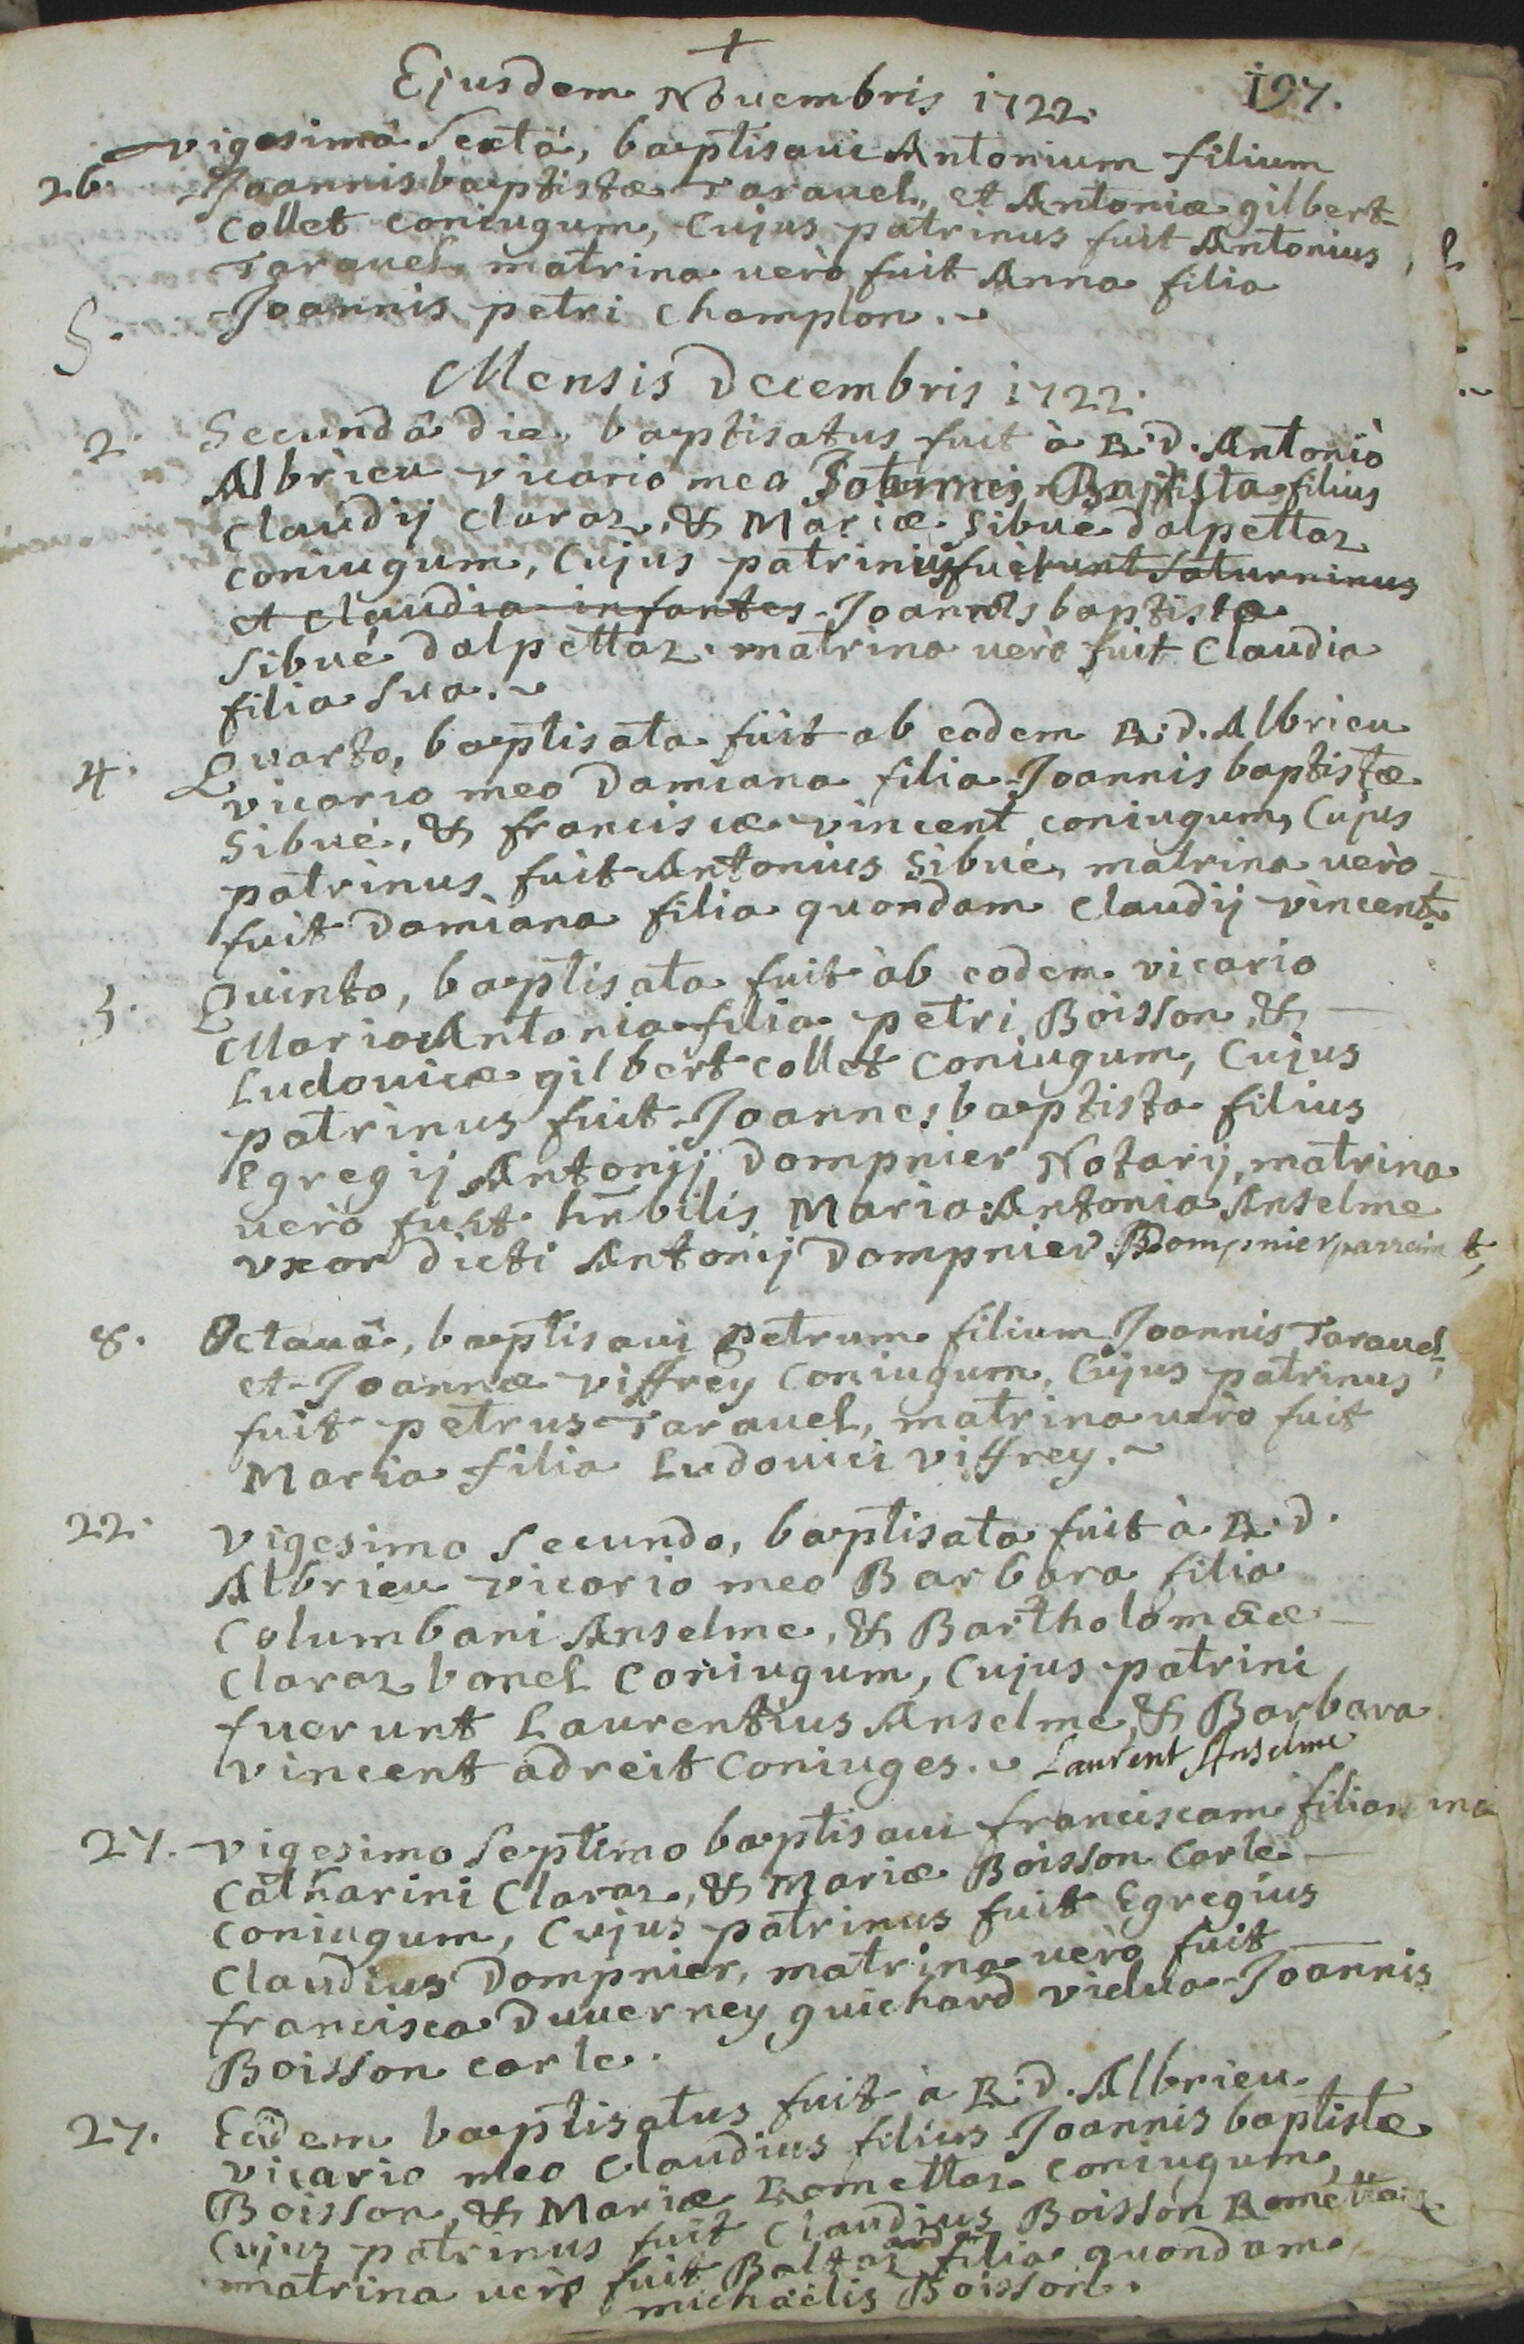 +
Ejusdem Novembris 1722. 197.
26. vigesimâ Sextâ, baptisaui Antonium filium
Joannisbaptistæ Tarauel, et Antoniæ gilbert
collet coniugum, Cujus patrinus fuit Antonius
Tarauel, matrina uerò fuit Anna filia
Joannis petri champlon.
S.
Mensis Decembris 1722.
2. Secundâ die, baptisatus fuit à R.D. Antoniò
Albrieu vicario meo Joannes Baptista filius
claudij claraz, & Mariæ Sibué dalpettaz
coniugum, Cujus patrinus fuerunt Saturninus
et claudia infantes Joannes baptista
Sibué dalpettaz. matrina uerò fuit Claudia
filia Sua.
4. Quarto, baptisata fuit ab eodem R.D. Albrieu
vicario meo Damiana filia Joannis baptistæ
Sibué, & franciscæ vincent coniugum, Cujus
patrinus fuit Antonius Sibué, matrina uerò
fuit Damiana filia quondam claudij vincent.
5. Quinto, baptisata fuit ab eodem vicario
Maria Antonia filia petri Boisson, &
Ludouicæ gilbert collet coniugum, Cujus
patrinus fuit Joannesbaptista filius
Egregij Antonij Dompnier Notarij, matrina
uerò fuit hn̄bilis Maria Antonia Anselme
vxor dicti Antonij Dompnier Dompnier parrein
8. Octauâ, baptisaui Petrum filium Joannis Tarauel,
et Joannæ viffrey Coniugum, Cujus patrinus
fuit petrus Tarauel, matrina uerò fuit
Maria filia Ludouici viffrey.
22. vigesimo Secundo, baptisata fuit à R.D.
Albrieu vicario meo Barbara filia
Columbani Anselme, & Bartholomææ
claraz bonel Coniugum, Cujus patrini
fuerunt Laurentius Anselme, & Barbara
vincent adreit Coniuges. Laurent Anselme
27. vigesimo Septimo baptisaui franciscam filiam
Catharini Claraz, & Mariæ Boisson Carle
Coniugum, Cujus patrinus fuit Egregius
Claudius Dompnier, matrina uerò fuit
francisca Duuerney guichard vidua Joannis
Boisson carle.
27. Eâdem baptisatus fuit à R.D. Albrieu
vicario meo Claudius filius Joannis baptistæ
Boisson, & Mariæ Romettaz coniugum,
Cujus patrinus fuit Claudius Boisson Romettaz
matrina uerò fuit Baltazard filia quondam
michaëlis Boisson.